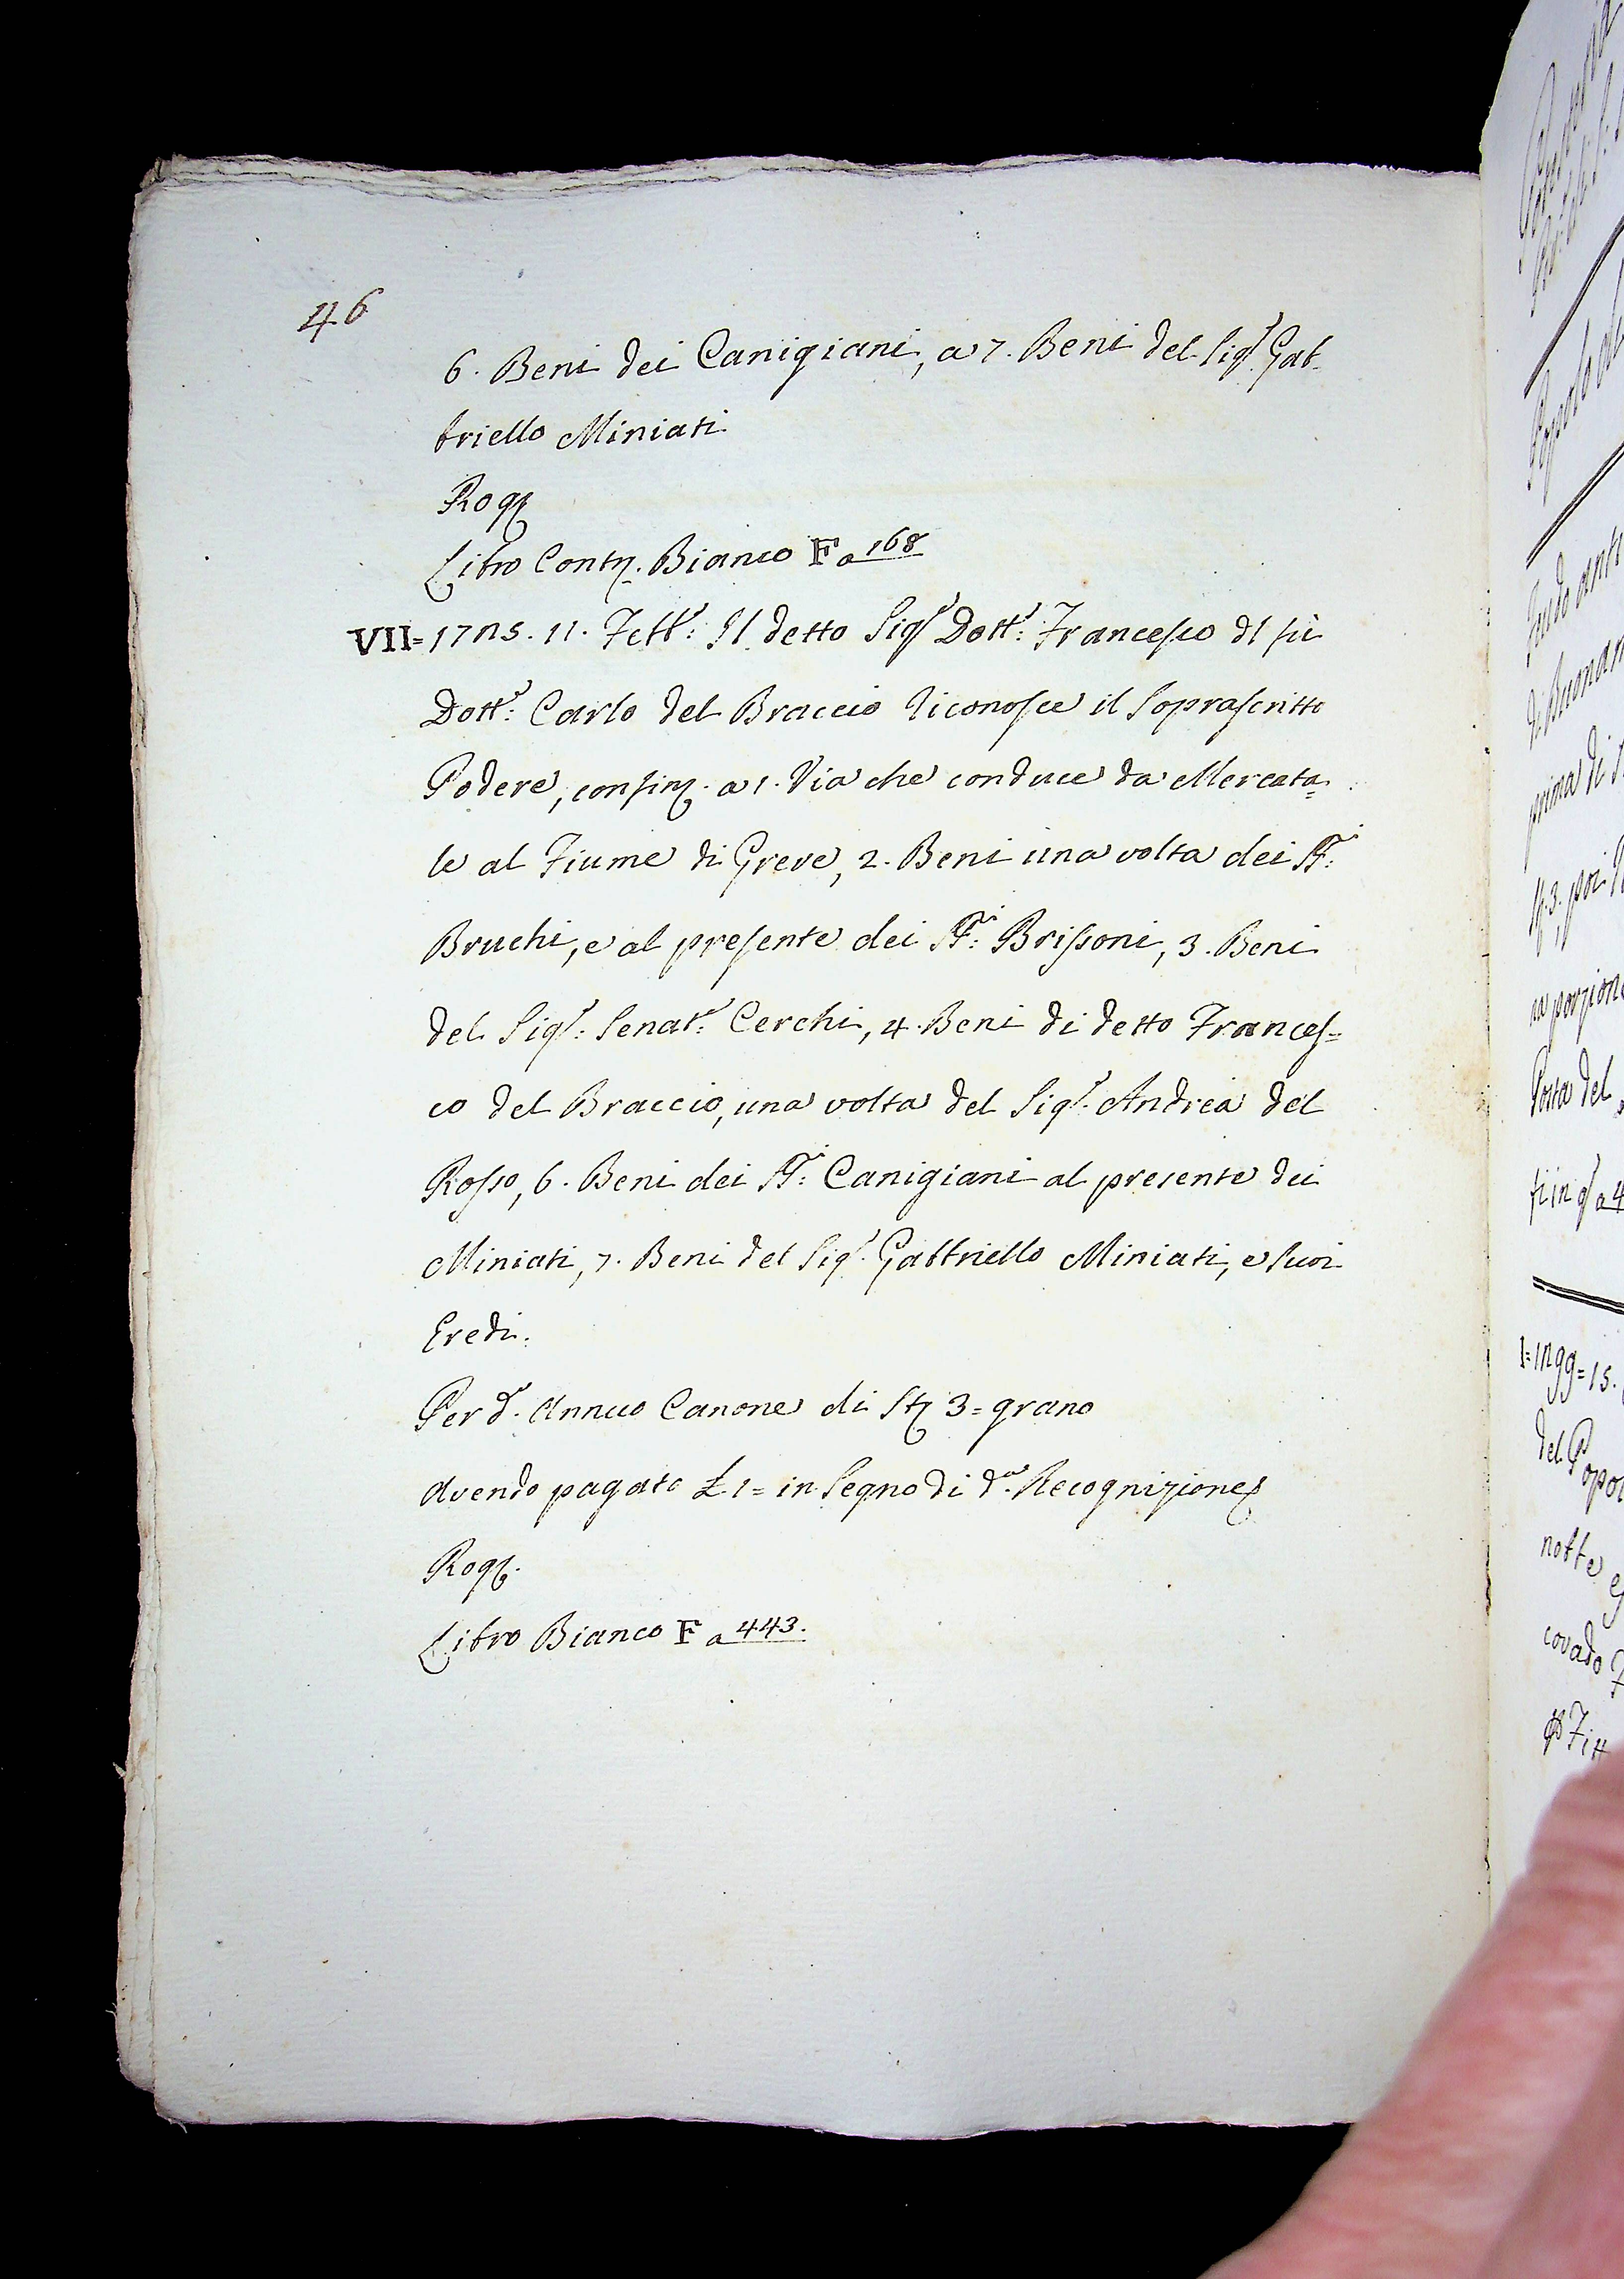 46
6. Beni dei Canigiani, a 7. Beni del Sig.r Gab-
briello Miniati
Rog
Libro Contr. Bianco F a 168
VII = 1715. 11. Febb.r: Il detto Sig.r Dott.r: Francesco dl fù
Dott.r: Carlo del Braccio riconosce il soprascritto
Podere, confin. a 1. Via che conduce da Mercata=
le al Fiume di Greve, 2. Beni una volta dei SS.i:
Bruchi, e al presente dei SS.i: Brissoni, 3. Beni
del Sig.r: Senat.r: Cerchi, 4. Beni di detto Frances=
co del Braccio, una volta del Sig.r: Andrea del
Rosso, 6. Beni dei SS.i: Canigiani al presente dei
Miniati, 7. Beni del Sig.r Gabbriello Miniati, e suoi
Eredi.
Per d.o Annuo Canone di St. 3 = grano
Avendo pagato £. 1 = in segno di d.a Recognizione
Rog.
Libro Bianco F a 443.
prima di
na porzione
Posta del
del Popol
notte
covado